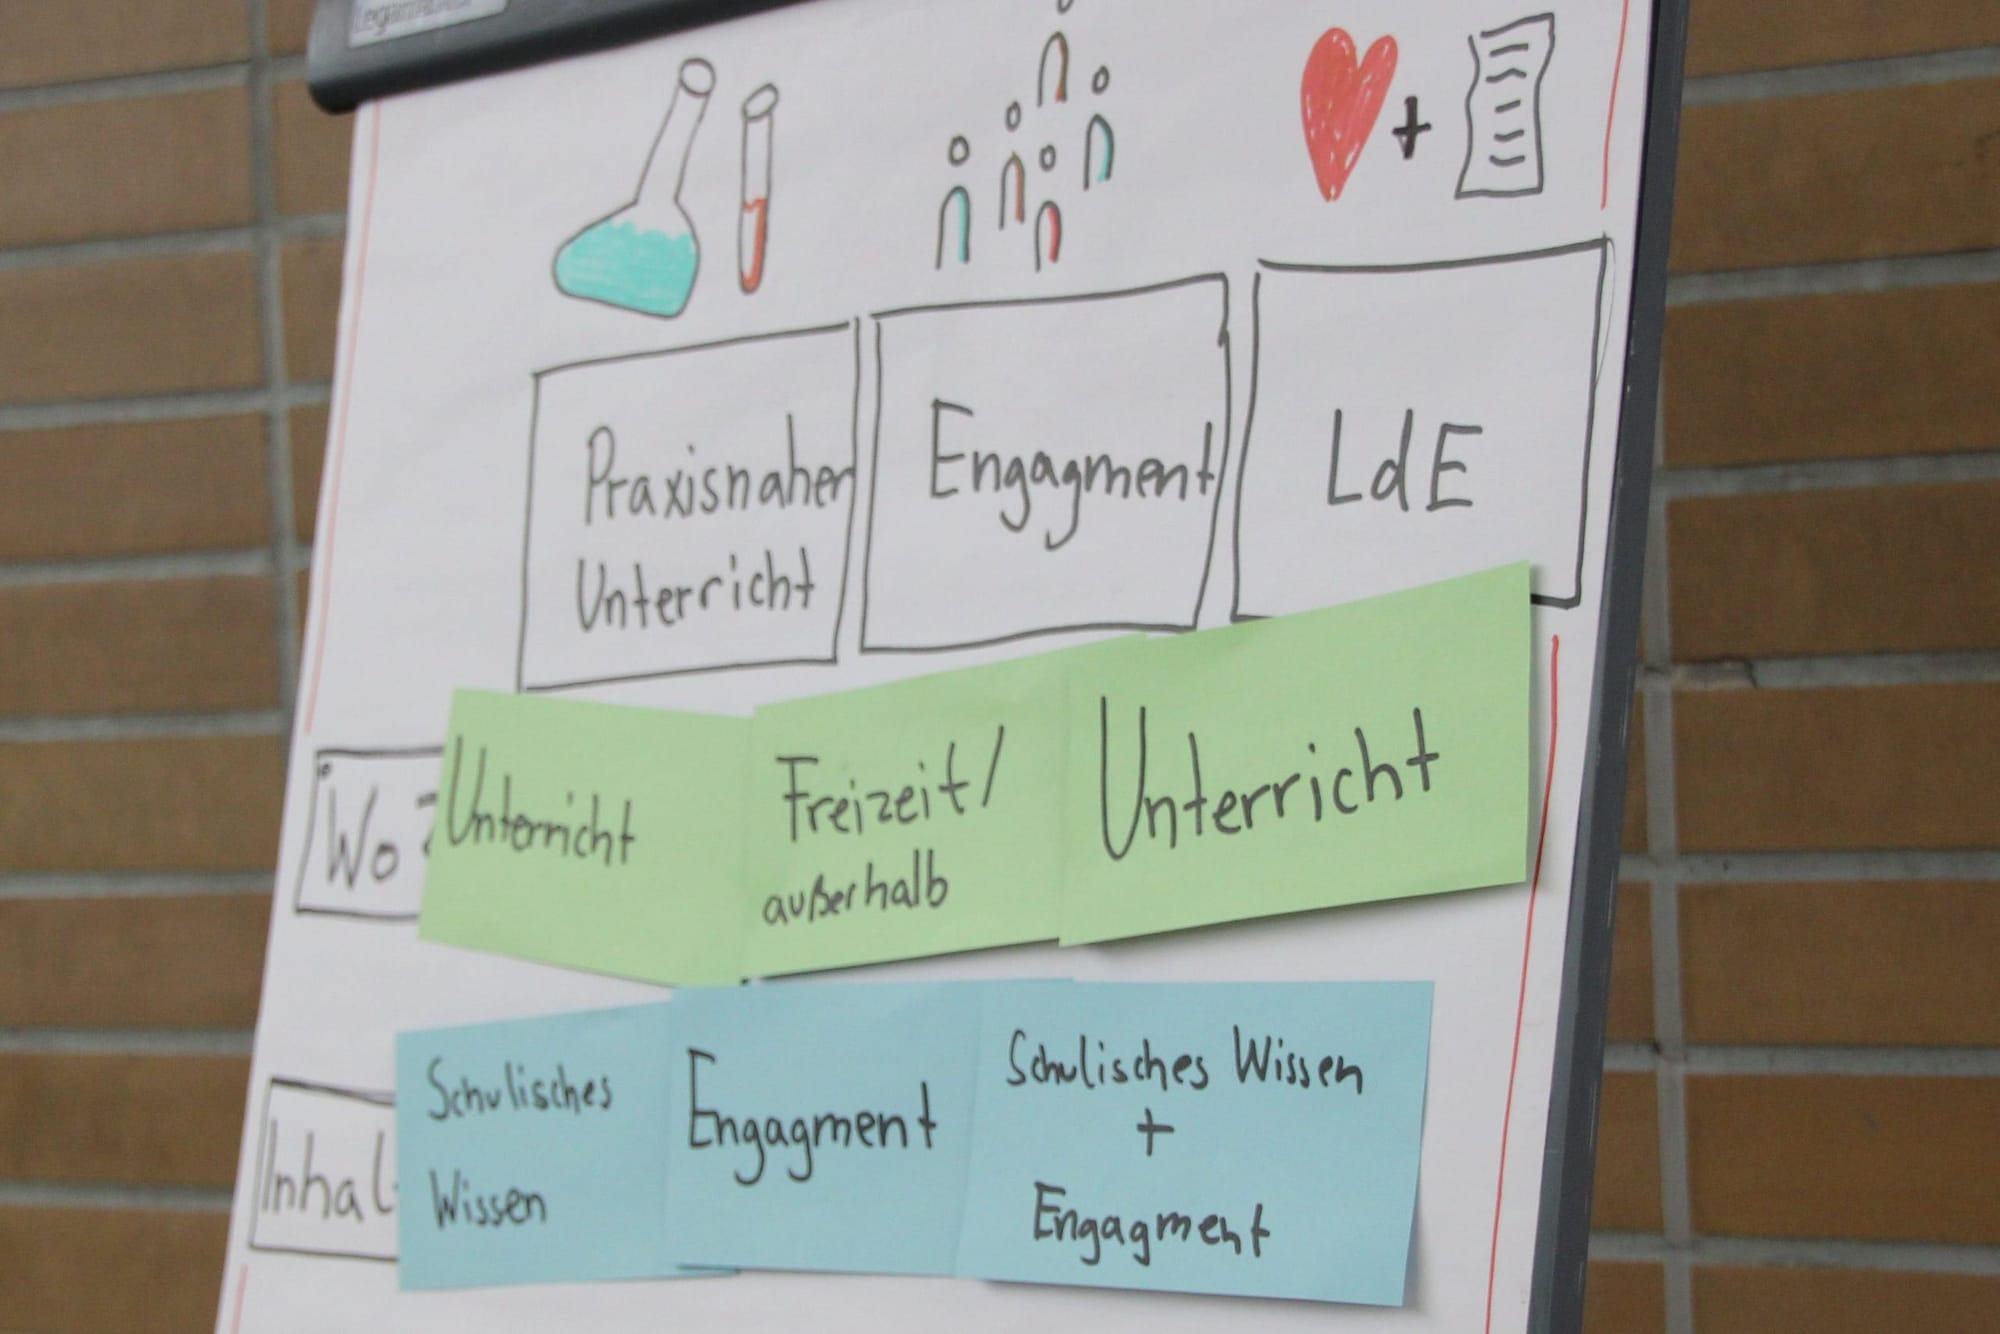 +
Praxisnaher
Unterricht
Engagment
LdE
Wo ?
Unterricht
Freizeit/
außerhalb
Unterricht
Inhal
Schulisches
Wissen
Engagment
Schulisches Wissen
+
Engagment